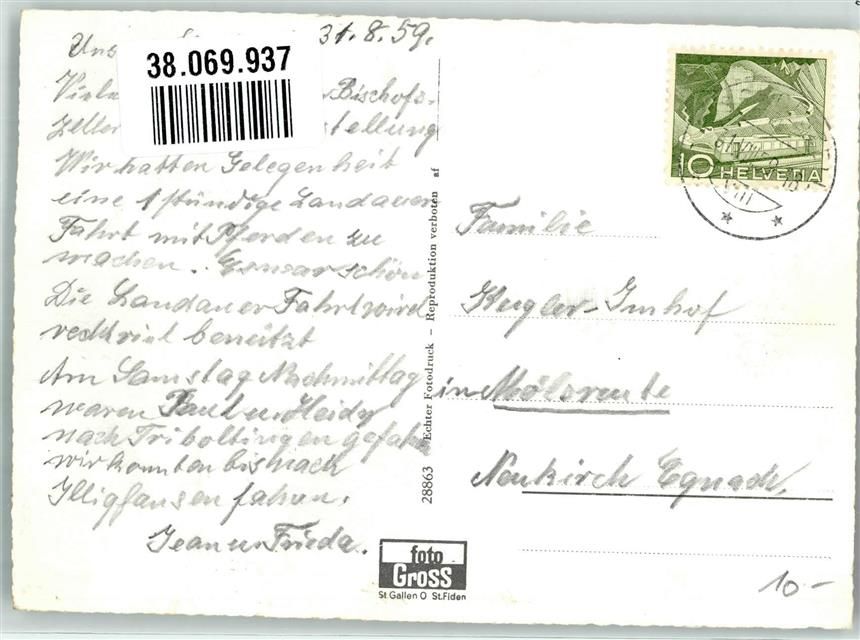 Uns 31.8.59.
38.069.937
Viele Bischofs-
zeller stellung
Wir hatten Gelegenheit
eine 1 stündige Landauer
Fahrt mit Pferden zu
machen. Es war schön
Die Landauer Fahrt wird
recht viel benützt
Am Samstag Nachmittag
waren Paul u. Heidy
nach Triboltingen gefahr
wir konnten bis nach
Illighausen fahren.
Jean u. Frieda.
28863 Echter Fotodruck – Reproduktion verboten af
foto
Gross
St. Gallen O St. Fiden
10 HELVETIA
Familie
Kugler-Imhof
in
Neukirch Egnach.
10-